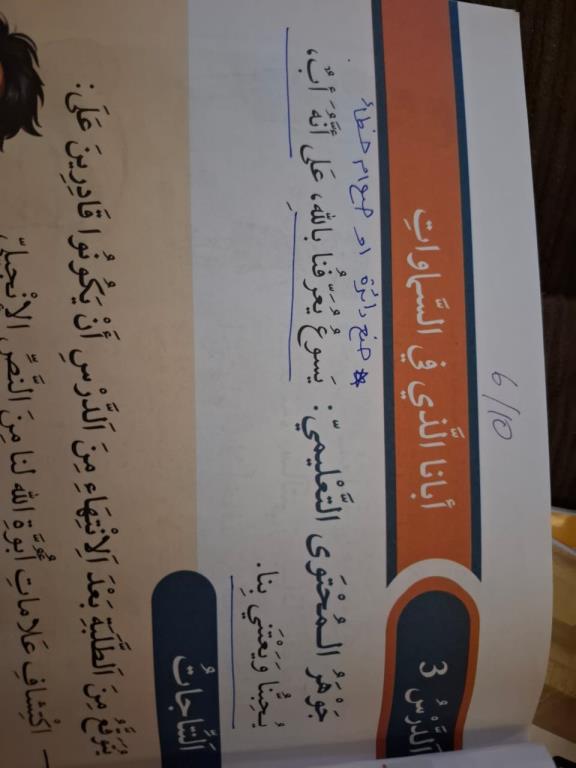 6/10
الدَّرْسُ 3
أبانا الَّذي في السَّماواتِ
* ضع دائرة او صح ام خطاء
جَوْهَرُ الْمُحْتَوى التَّعْليميّ: يَسوعُ يُعَرِّفُنا بِاللهِ، عَلى أَنَّهُ أَبٌ،
يُحِبُّنا وَيَعْتَني بِنا.
اَلنِّتاجاتُ
يُتَوَقَّعُ مِنَ الطَّلَبَةِ بَعْدَ الِانْتِهاءِ مِنَ الدَّرْسِ أَنْ يَكُونُوا قَادِرِينَ عَلَى:
– اكْتِشافِ عَلاماتِ أُبُوَّةِ اللهِ لنا مِنَ النَّصِّ الإنْجيليِّ،